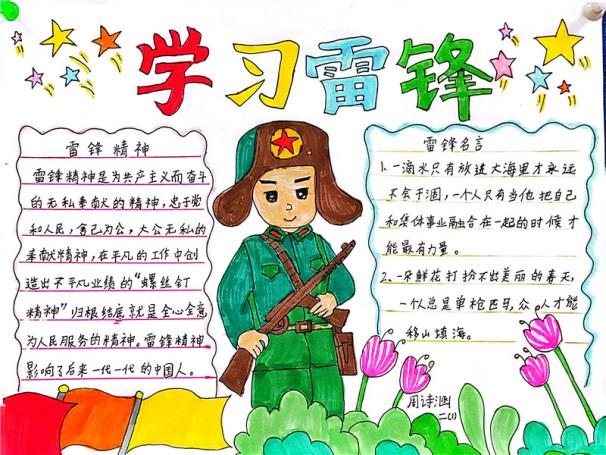 学习雷锋
雷锋精神
雷锋精神是为共产主义而奋斗
的无私奉献的精神，忠于党
和人民，舍己为公，大公无私的
奉献精神，在平凡的工作中创
造出不平凡业绩的“螺丝钉
精神”归根结底就是全心全意
为人民服务的精神。雷锋精神
影响了后来一代一代的中国人。
雷锋名言
1、一滴水只有放进大海里才永远
不会干涸，一个人只有当他把自己
和集体事业融合在一起的时候才
能最有力量。
2、一朵鲜花打扮不出美丽的春天，
一个人总是单枪匹马，众人才能
移山填海。
周诗涵
二(1)